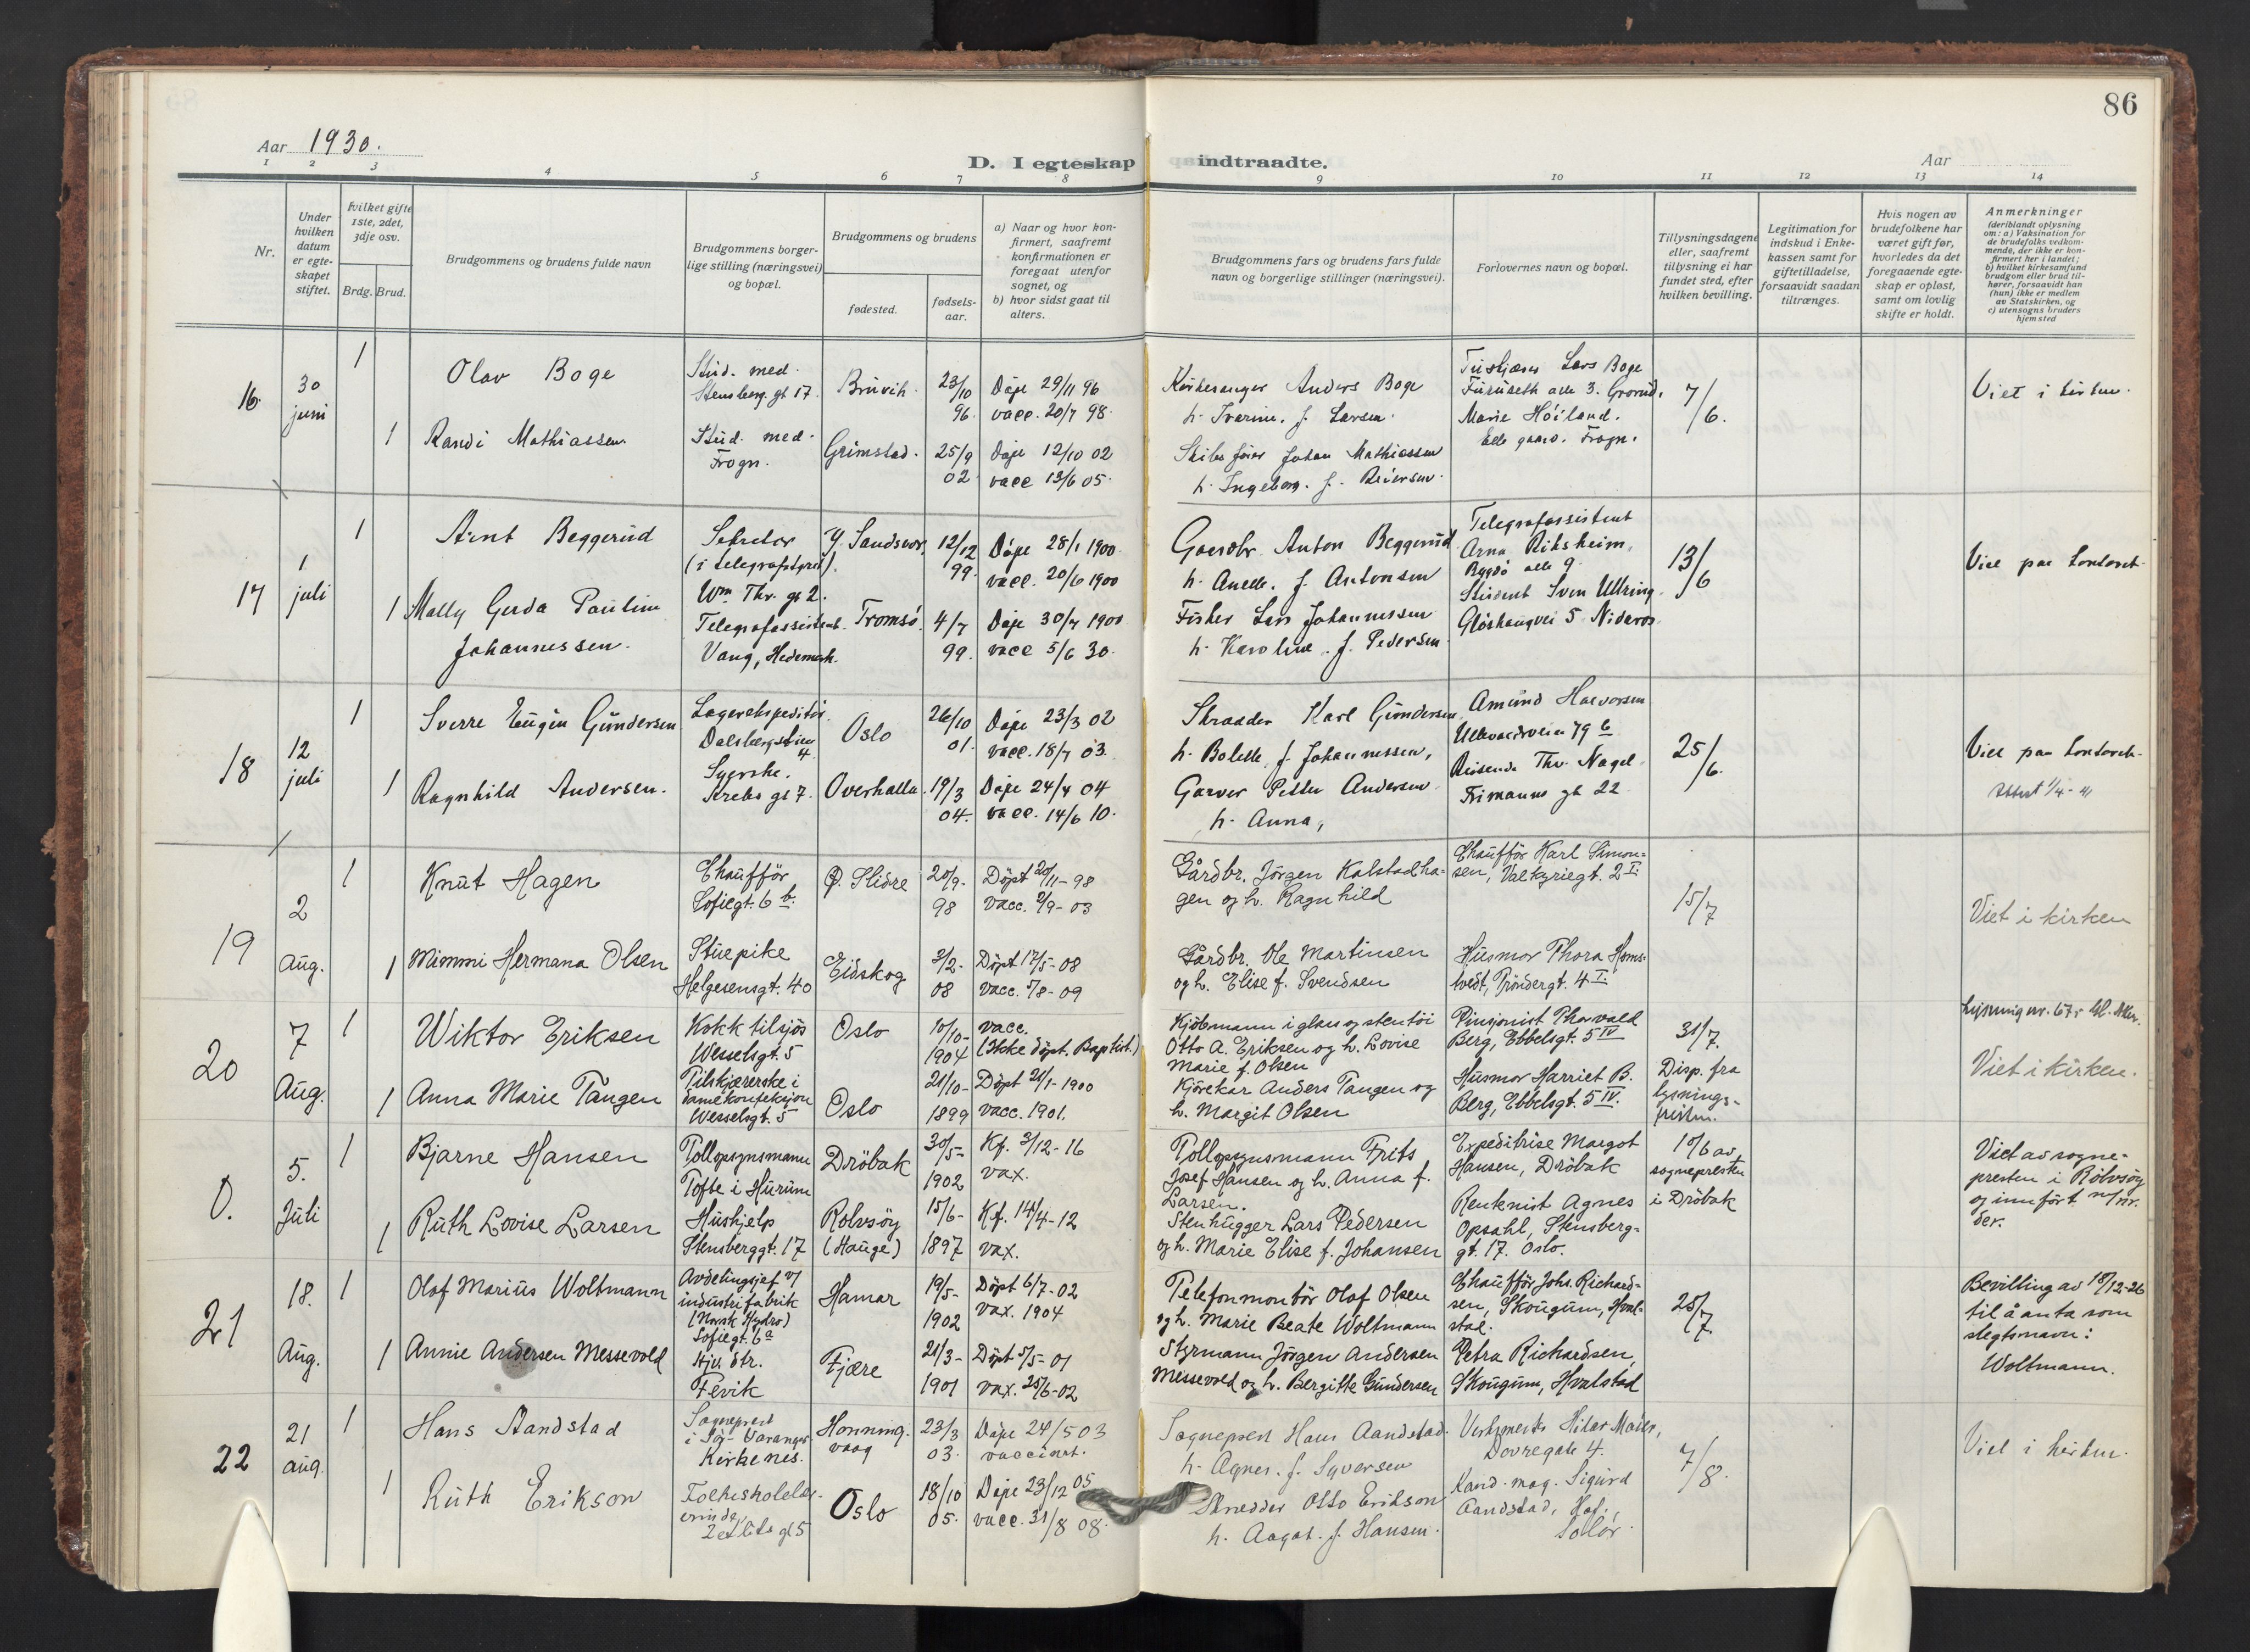 86
Aar 1930.
D. I egteskap indtraadte.
Aar
1 2 3 4 5 6 7 8 9 10 11 12 13 14
Nr.
Under hvilken datum er egte-skapet stiftet.
Hvilket gifte 1ste, 2det, 3dje osv.
Brdg. Brud.
Brudgommens og brudens fulde navn
Brudgommens borger-lige stilling (næringsvei) og bopæl.
Brudgommens og brudens
fødested.
fødsels-aar.
a) Naar og hvor kon-firmert, saafremt konfirmationen er foregaat utenfor sognet, og
b) hvor sidst gaat til alters.
Brudgommens fars og brudens fars fulde navn og borgerlige stillinger (næringsvei).
Forlovernes navn og bopæl.
Tillysningsdagene eller, saafremt tillysning ei har fundet sted, efter hvilken bevilling.
Legitimation for indskud i Enke-kassen samt for giftetilladelse, forsaavidt saadan tiltrænges.
Hvis nogen av brudefolkene har været gift før, hvorledes da det foregaaende egte-skap er opløst, samt om lovlig skifte er holdt.
Anmerkninger (deriblandt oplysning om: a) Vaksination for de brudefolks vedkom-mende, der ikke er kon-firmert her i landet; b) hvilket kirkesamfund brudgom eller brud til-hører, forsaavidt han (hun) ikke er medlem av Statskirken, og c) utensogns bruders hjemsted
16. 30 juni
1 Olav Boge
Stud. med.
Stensberg. gt 17.
Bruvik.
23/10 96.
Døpt 29/11 96
vacc. 20/7 98.
Kirkesanger Anders Boge
h. Ivarine. f. Larsen.
Lars Boge
Furuseth alle 3. Grorud.
7/6.
Viet i kirken.
1 Randi Mathiassen
Stud. med.
Frogn.
Grimstad.
25/9 02.
Døpt 12/10 02
vacc 13/6 05.
Skibsfører Johan Mathiassen
h. Ingeborg. f.
Marie Höiland.
Frogn.
17 1 juli
1 Arnt Beggerud
Sekretær
(i telegrafstyret).
Wm Thr. gt 2.
Y. Sandsvær
12/12 99.
Døpt 28/1 1900.
vacc. 20/6 1900
Gaardbr. Anton Beggerud
h. Anette. f. Antonsen
Telegrafassistent
Arna Riksheim,
Bygdö alle 9
13/6
Viet paa kontoret.
1 Mally Gerda Pauline
Johannessen.
Telegrafassistent.
Vang, Hedemark.
Tromsø.
4/7 99.
Døpt 30/7 1900
vacc 5/6 30.
Fisker Lars Johannessen
h. Karoline. f. Pedersen.
Student Sven Ullring.
Glöshaugvei 5. Nidaros.
18 12 juli
1 Sverre Eugen Gundersen
Lagerekspeditör.
Dalsbergstien 4.
Oslo
26/10 01.
Døpt 23/3 02
vacc. 18/7 03.
Skrædder Karl Gundersen
h. Bolette, f. Johannessen,
Amund Halvorsen
Ullevaalsveien 79 b
25/6.
Viet paa kontoret.
1 Ragnhild Andersen.
Syerske.
Krebs gt 7.
Overhalla.
19/3 04.
Døpt 24/4 04
vacc. 14/6 10.
Garver Petter Andersen
h. Anna,
Reisende Thv. Nagel.
Frimanns gt 22
19 2 Aug.
1 Knut Hagen
Chaufför
Sofiegt. 6 b.
Ø. Slidre
20/9- 98
Döpt 20/11-98
vacc. 2/9-03
Gårdbr. Jörgen Kalstadha-
gen og h. Ragnhild
Chaufför Karl Simon-
sen, Valkyriegt. 2 I.
15/7
Viet i kirken
1 Mimmi Hermana Olsen
Stuepike
Helgesensgt. 40
Eidskog
3/2- 08
Döpt 17/5-08
vacc. 5/8-09
Gårdbr. Ole Martinsen
og h. Elise f. Svendsen
Husmor Thora Homs-
tvedt, Tröndergt. 4 I.
20 7 Aug.
1 Wiktor Eriksen
Kokk tilsjös
Wesselsgt. 5
Oslo
10/10- 1904
vacc.
(Ikke döpt. Baptist.)
Kjöbmann i glas og stentöi
Otto A. Eriksen og h. Lovise
Marie f. Olsen
Pensjonist Thorvald
Berg, Ebbelsgt. 5 IV
31/7.
Disp. fra
lysnings-
fristen.
Viet i kirken.
1 Anna Marie Tangen
Tilskjærerske i
damekonfeksjon
Wesselsgt. 5
Oslo
21/10- 1899
Döpt 21/1-1900
vacc. 1901.
Kjörekar Anders Tangen og
h. Margit Olsen
Husmor Harriet B.
Berg, Ebbelsgt. 5 IV.
0. 5. Juli
1 Bjarne Hansen
Tollopsynsmann
Tofte i Hurum
Dröbak
30/5- 1902
Kf. 3/12-16
vax.
Tollopsynsmann Frits
Josef Hansen og h. Anna f.
Larsen.
Expeditrise Margot
Hansen, Dröbak
10/6 av
sognepresten
i Dröbak
Viet av sogne-
presten i Rolvsöy
og innfört
der.
1 Ruth Lovise Larsen
Hushjelp
Stensberggt. 17
Rolvsöy
(Hauge)
15/6- 1897
Kf. 14/4-12
vax.
Stenhugger Lars Pedersen
og h. Marie Elise f. Johansen
Rentenist Agnes
Opsahl, Stensberg-
gt. 17. Oslo.
21 18. Aug.
1 Olaf Marius Woltmann
Avdelingsjef v/
industrifabrik
(Norsk Hydro)
Sofiegt. 6 a
Hamar
19/5- 1902
Döpt 6/7-02
vax. 1904
Telefonmontör Olaf Olsen
og h. Marie Beate Woltmann
Chaufför Johs. Richard-
sen, Skougum, Hval-
stad.
25/7
Bevilling av 18/12-26
til å anta som
slegtsnavn:
Woltmann.
1 Annie Andersen Messevold
Hjv. str.
Fevik
Fjære
21/3- 1901
Döpt 5/5-01
vax. 25/6-02
Styrmann Jörgen Andersen
Messevold og h. Bergitte Gundersen
Petra Richardsen,
Skougum, Hvalstad
22 21 aug.
1 Hans Aandstad
Sogneprest
i Sør-Varanger
Kirkenes.
Honning-
vaag
23/3 03.
Døpt 24/5 03
vaccinert.
Sogneprest Hans Aandstad.
h. Agnes. f. Syversen
Dovregate 4.
7/8.
Viet i kirken.
1 Ruth Erikson
Oslo
18/10 05.
Døpt 23/12 05
vacc. 31/8 08.
Skredder Otto Erikson
h. Aagot. f. Hansen.
Kand. mag. Sigurd
Aandstad, Hof,
Solør.